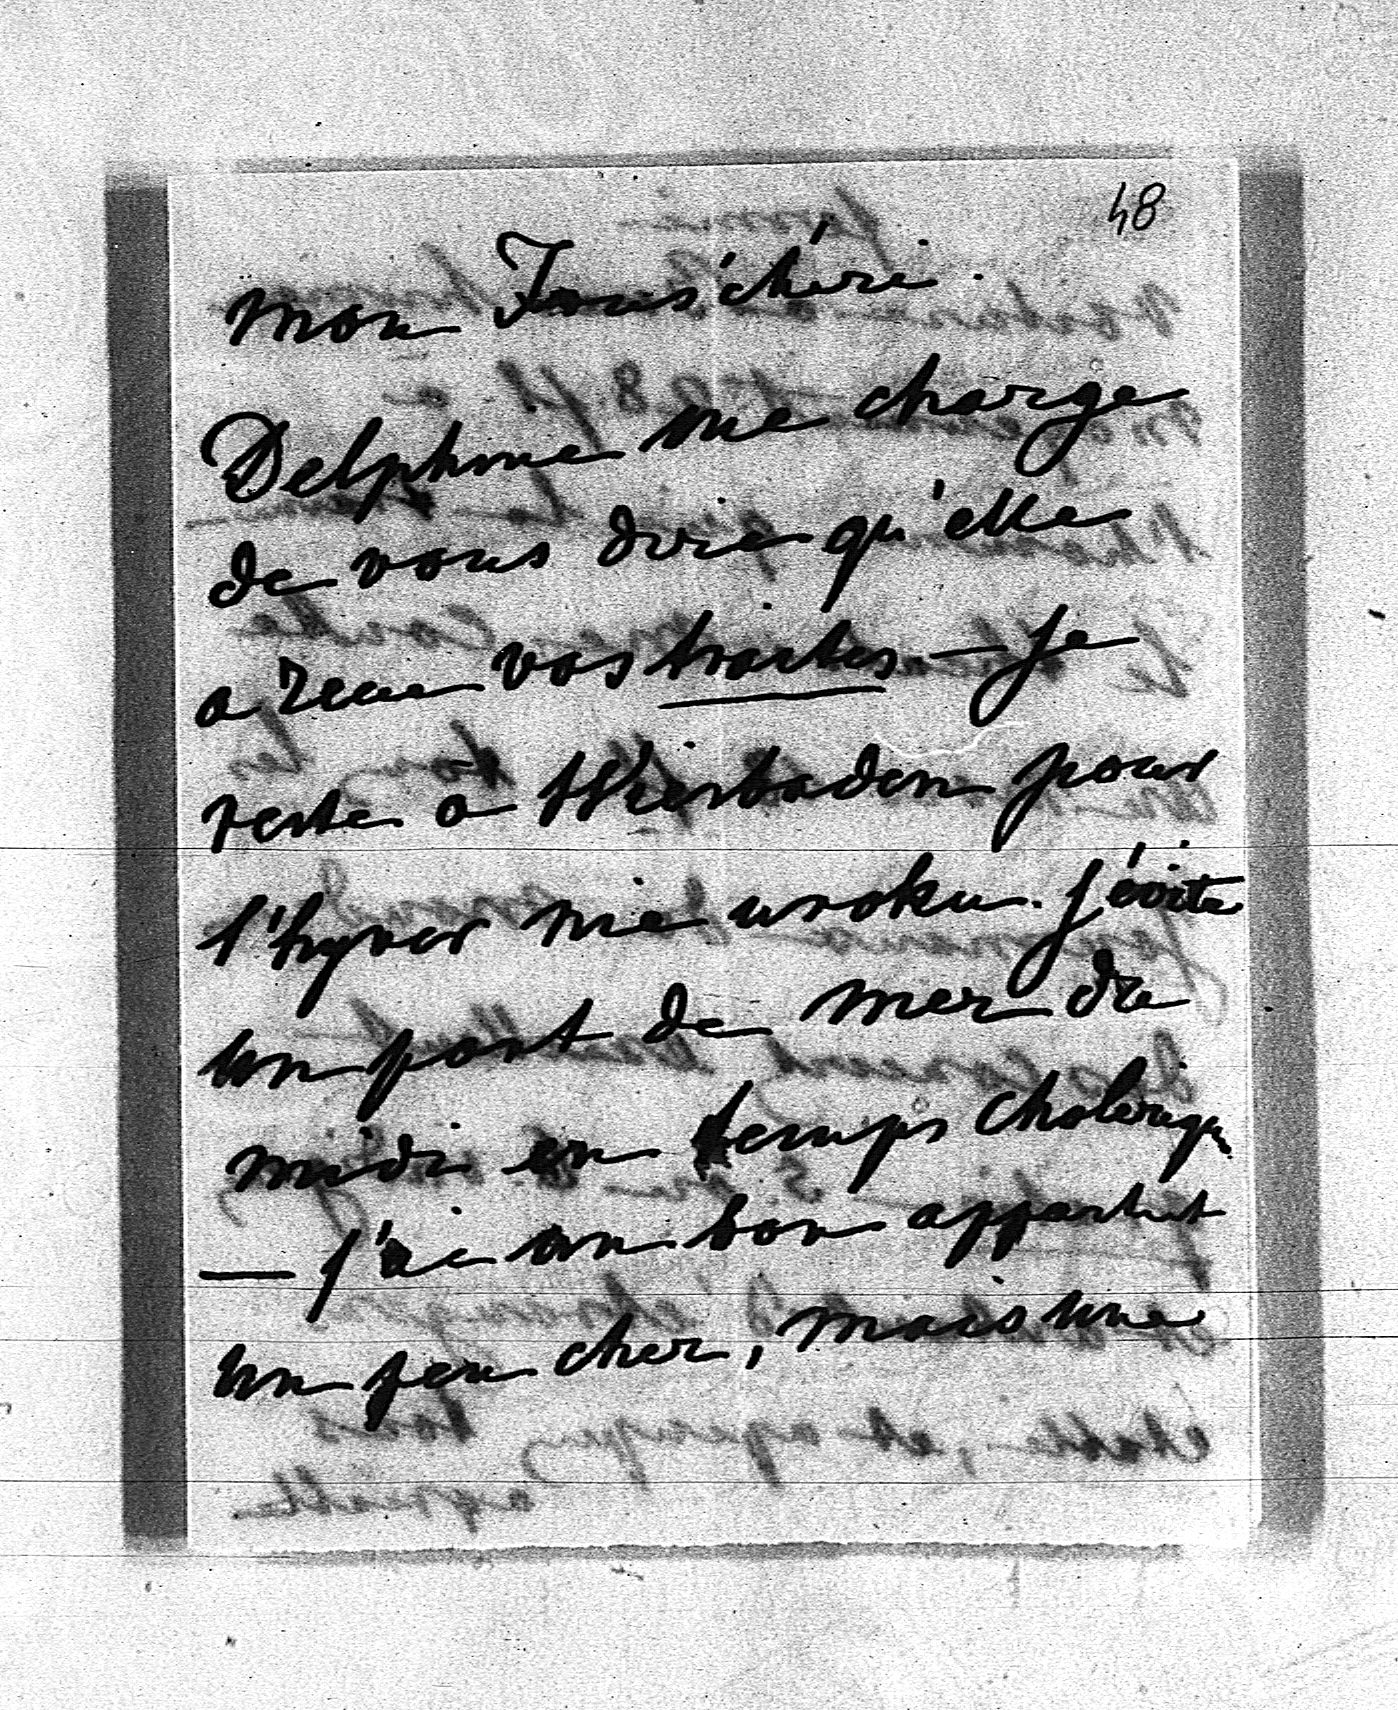 48
mon Fons chéri.
Delphine me charge
de vous dire qu'elle
a reçu vos traites — je
reste à Wiesbaden pour
l'hyver nie uroku. j'évite
un port de mer du
midi en temps cholérique
— j'ai un bon appartnt
un peu cher, mais une